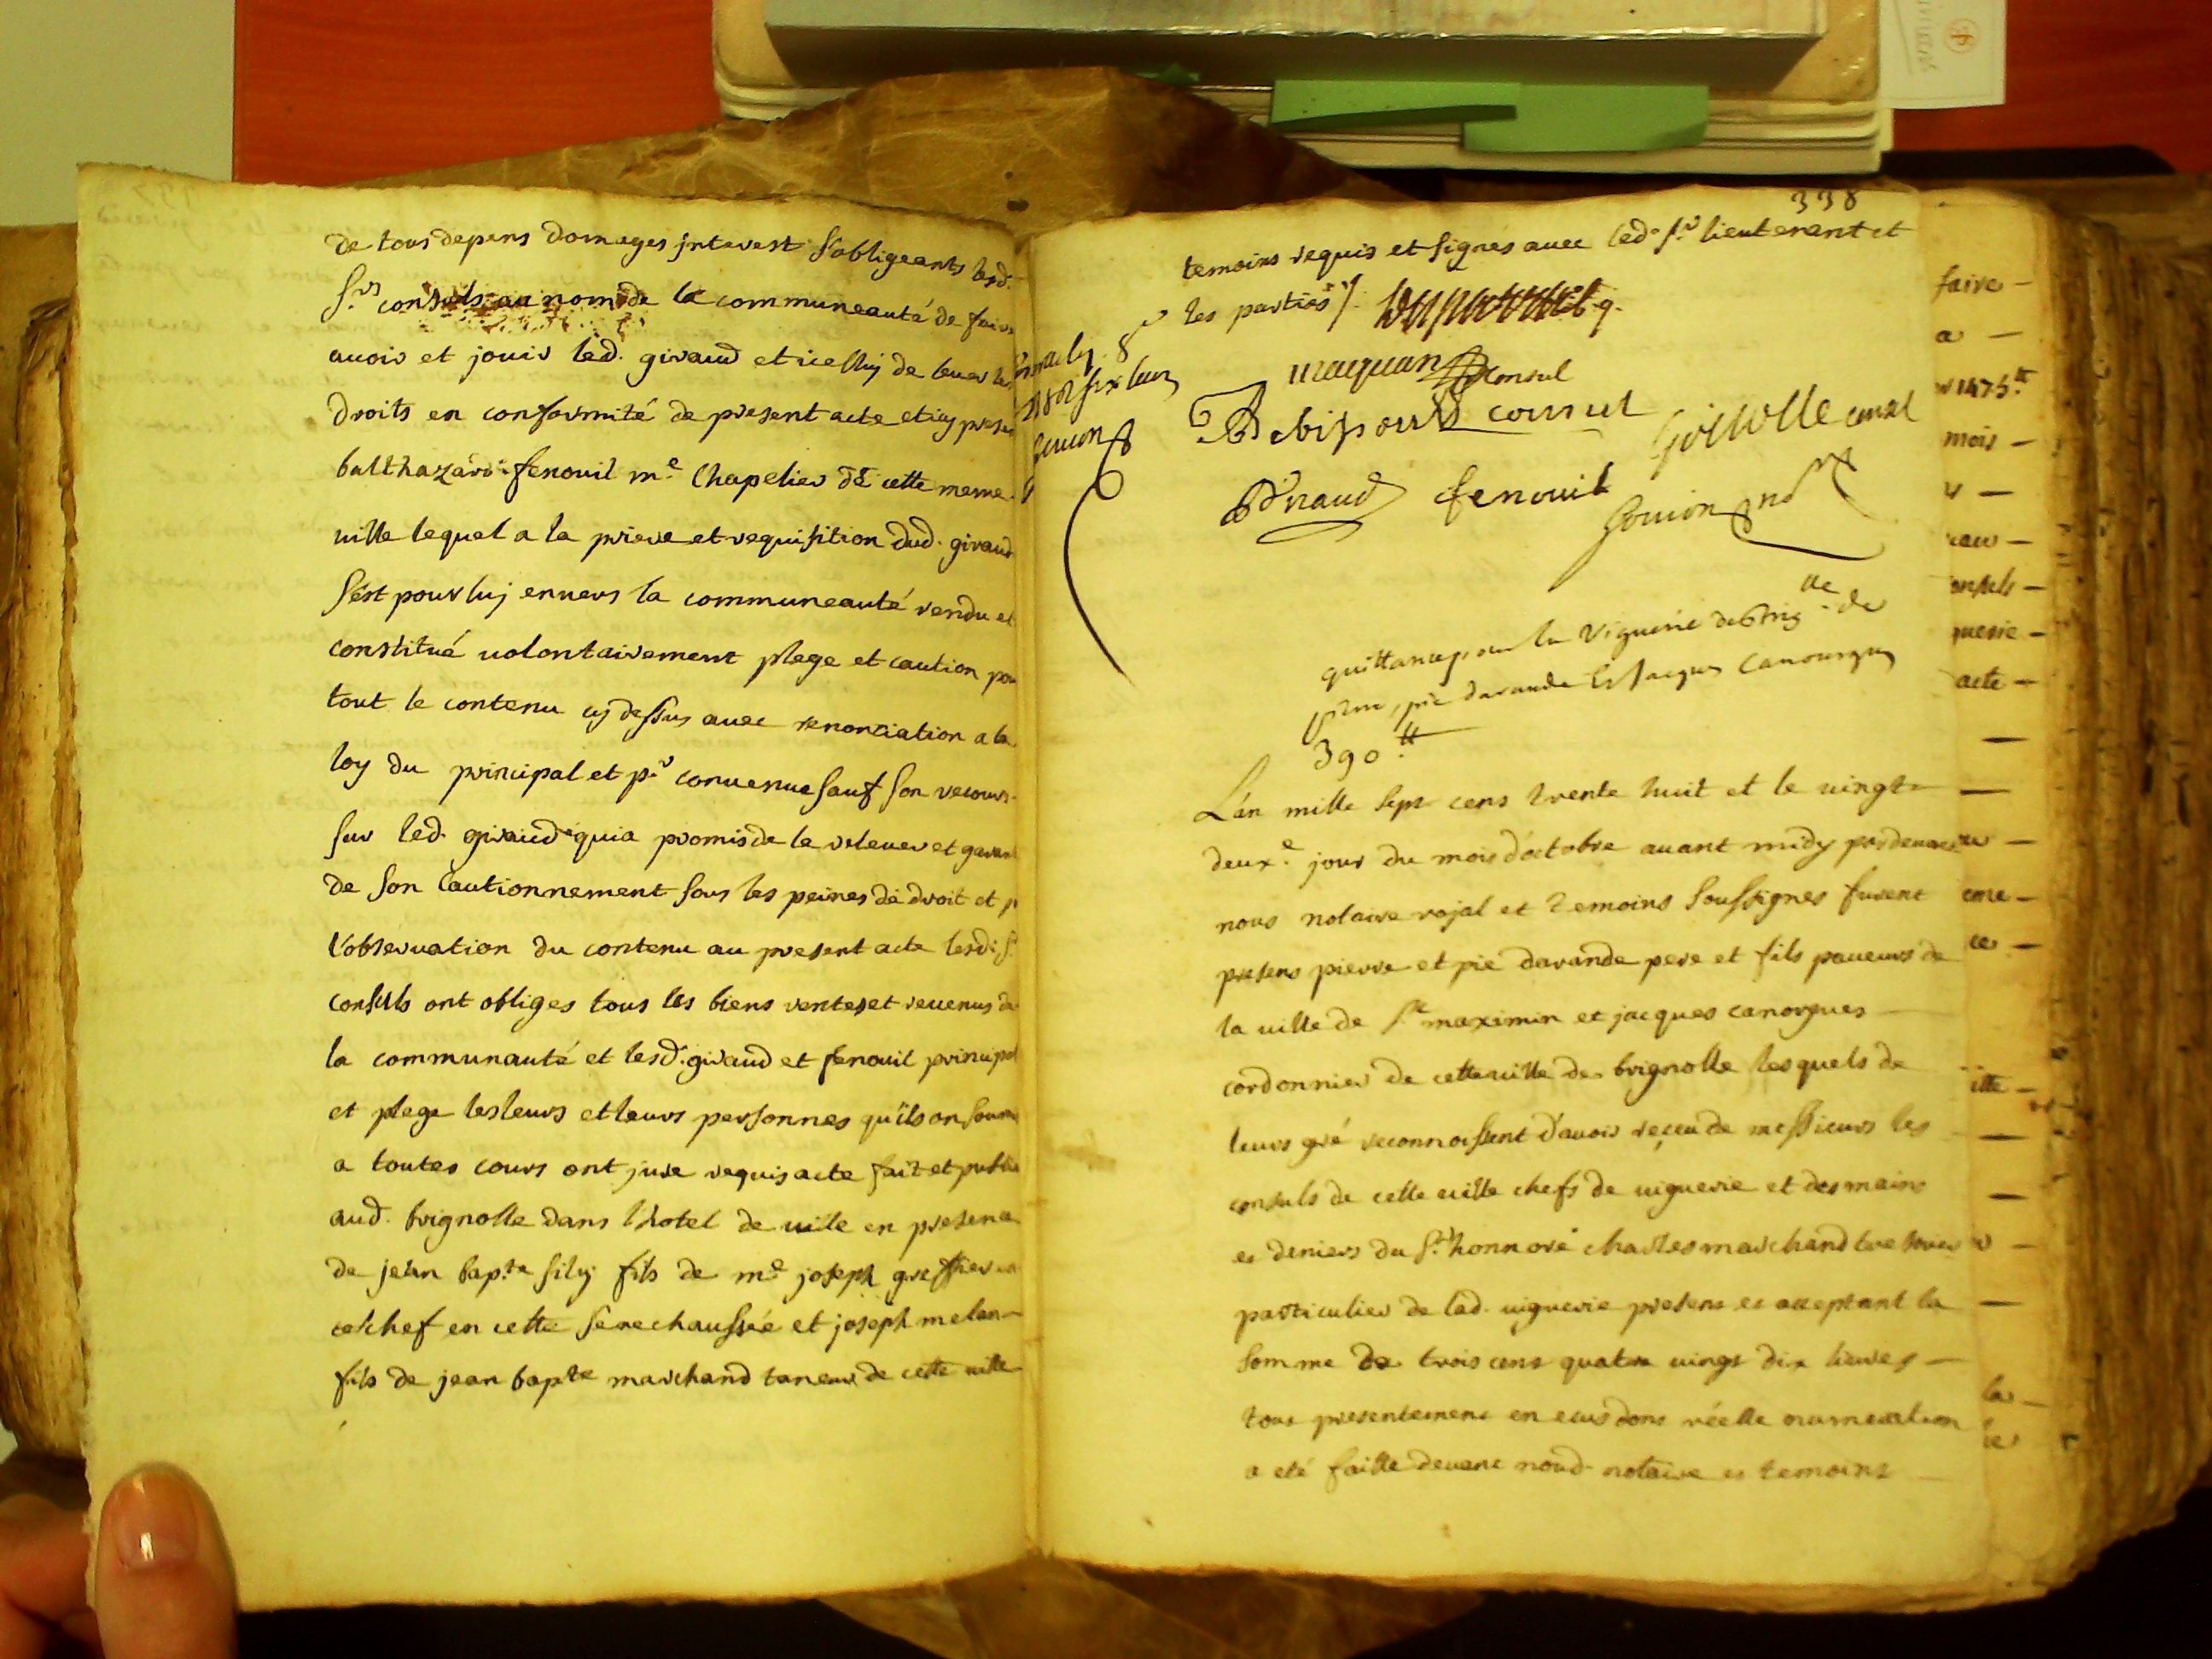 de tous depens domages interest s'obligeants lesd.
Srs consuls au nom de la communeauté de faire
auoir et jouir led. giraud et icelluy de leuer les
droits en conformité de present acte et icy present
balthazard fenouil me. chapelier de cette meme
uille lequel a la priere et requisition dud. giraud
s'est pour luj enuers la communeauté rendu et
constitué uolontairement plege et caution pour
tout le contenu cy dessus auec renonciation a la
loy du principal et pr. conuenue sauf son recours
sur led. giraud qui a promis de le releuer et garant
de son cautionnement sous les peines de droit et p
l'obseruation du contenu au present acte lesd. Srs
consuls ont obliges tous les biens rentes et reuenus de
la communauté et lesd. giraud et fenouil principal
et plege les leurs et leurs personnes qu'ils on soumis
a toutes cours ont juré requis acte fait et publié
aud. brignolle dans l'hotel de uille en presence
de jean bapte. siluj fils de me. joseph greffier en
chef en cette senechaussée et joseph melan
fils de jean bapte marchand taneur de cette uille
338
temoins requis et signés auec led. Sr. lieutenant et
les parties
maquan consul
consul
consul
Giraud fenouil
Gouion nore
quittance pour la Viguerie de Briglle. de
pierre, pié darande et Jacques Canourgues
390 ₶
L'an mille sept cens trente huit et le uingt
deuxe. jour du mois d'octobre auant midy pardeuant
nous notaire rojal et temoins soussignes furent
presens pierre et pié darande pere et fils paueurs de
la uille de St. maximin et jacques canorgues
cordonnier de cette uille de brignolle lesquels de
leurs gré reconnoissent d'auoir reçeu de messieurs les
consuls de cette uille chefs de uiguerie et des mains
et deniers du Sr. honnoré charles marchand tresorier
particulier de lad. uiguerie present et acceptant la
somme de trois cens quatre uingt dix liures
tous presentement en ecus dont réelle numeration
a eté faitte deuant noud. notaire et temoins
faire
a
1475 ₶
mois
onsuls
guerie
acte